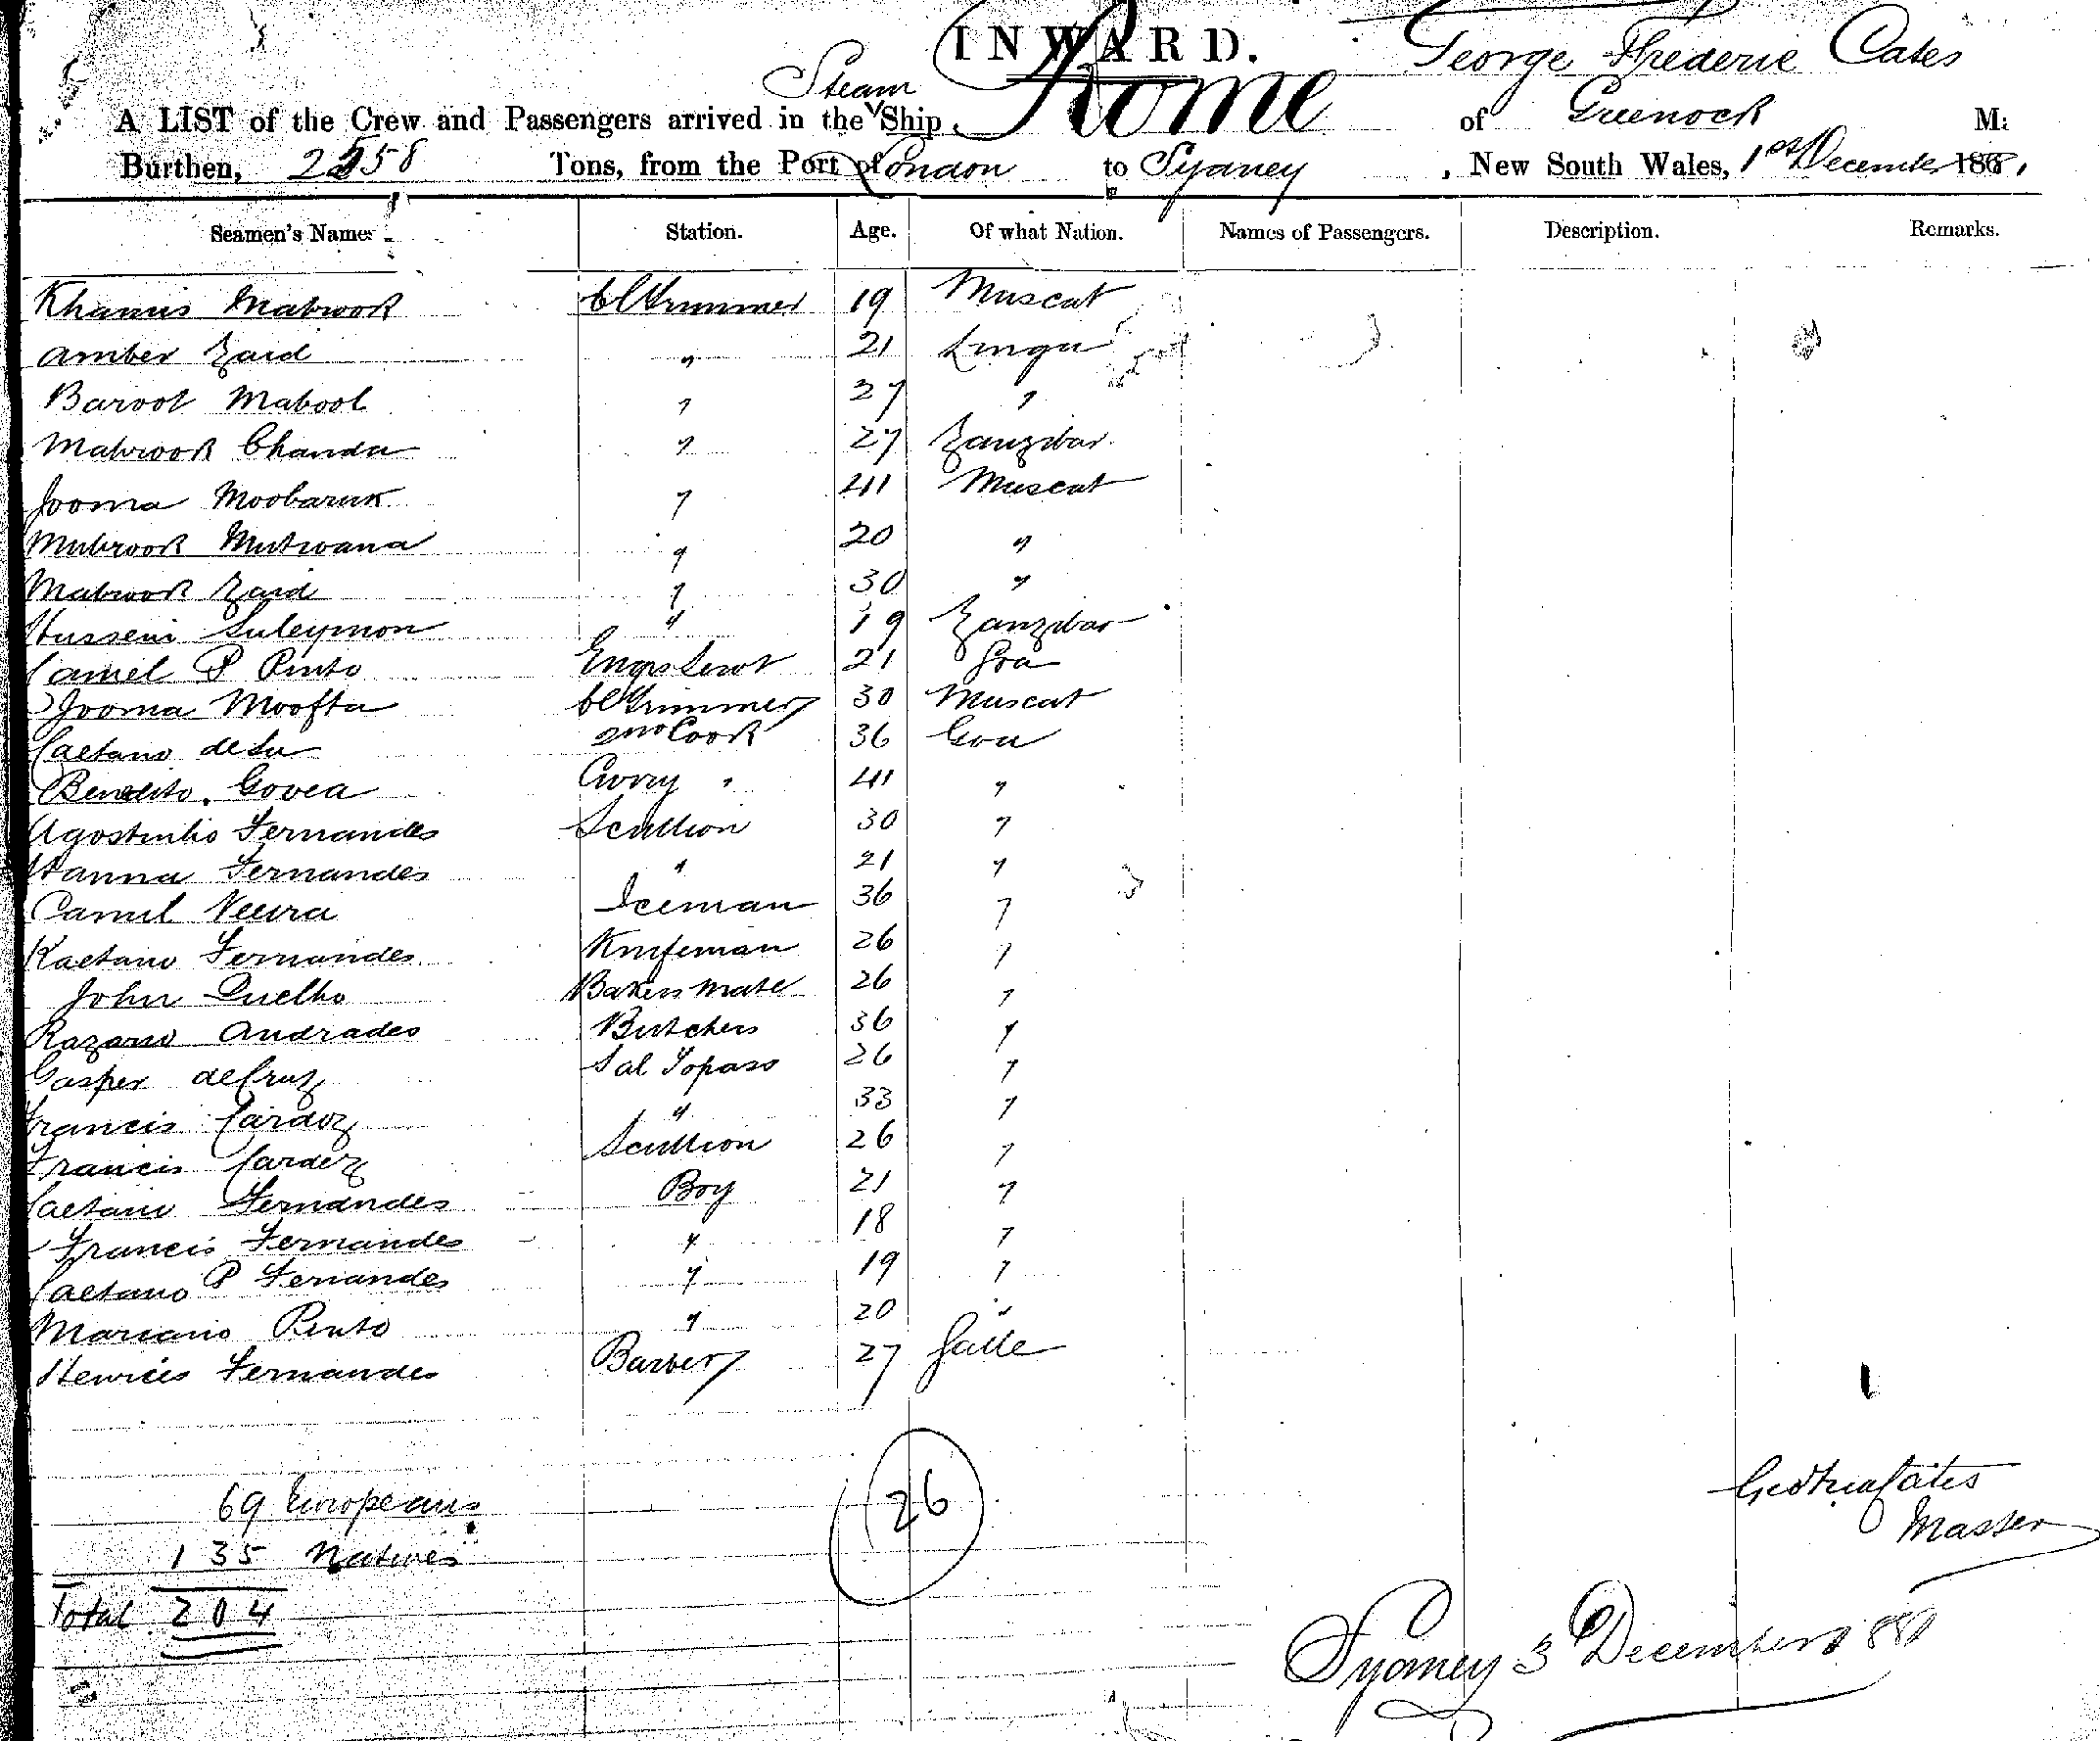 INWARD.
George Frederic Cates
A LIST of the Crew and Passengers arrived in the Steam Ship Rome of Greenock M:
Burthen, 2558 Tons, from the Port of London to Sydney, New South Wales, 1st December 1881
Seamen's Names Station. Age. Of what Nation. Names of Passengers. Description. Remarks.
Khamis Mabrook Cl Trimmer 19 Muscat
Amber Zaid " 21 Linga
Baroot Mabook " 27 "
Mabrook Chanda " 27 Zanzibar
Jooma Moobaruk " 41 Muscat
Mubrook Mutwana " 20 "
Mabrook Zaid " 30 "
Hussein Suleymon " 19 Zanzibar
Camel P Pinto Engrs Servt 21 Goa
Jooma Moofta Cl Trimmer 30 Muscat
Caetano de Sa 2nd Cook 36 Goa
Benedito Govea Curry " 41 "
Agostinho Fernandes Scullion 30 "
Hanna Fernandes " 21 "
Camil Veura Iceman 36 "
Kaetano Fernandes Knifeman 26 "
John Quelho Bakers Mate 26 "
Razario Andrades Butchers 36 "
Gasper de Cruz Sal Topass 26 "
Francis Cardoz " 33 "
Francis Cardoz Scullion 26 "
Caetano Fernandes Boy 21 "
Francis Fernandes " 18 "
Caetano P Fernandes " 19 "
Mariano Pinto " 20 "
Henricis Fernandes Barber 27 Galle
69 Europeans
26
135 Natives
Total 204
Geo Fred Cates
Master
Sydney 3 December 1881